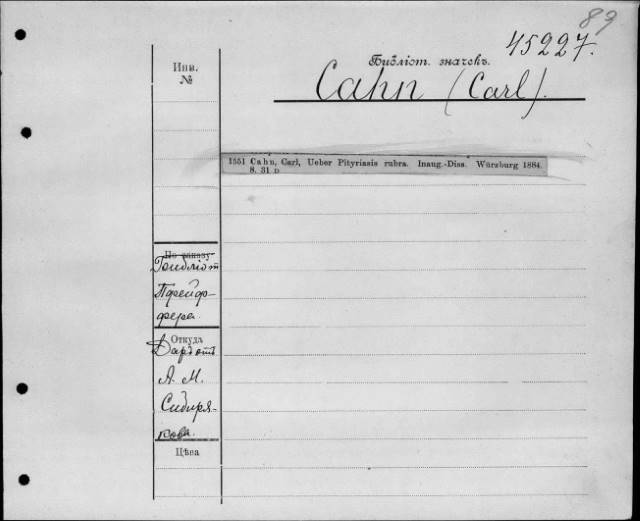 89
45227.
Библіот. значекъ.
Cahn (Carl).
Инв.
№
1551 Cahn, Carl, Ueber Pityriasis rubra. Inaug.-Diss. Würzburg 1884.
8. 31 p
По заказу
Пфейф-
фера
Откуда
Даръ отъ
А. М.
Сибиря-
кова.
Цѣна